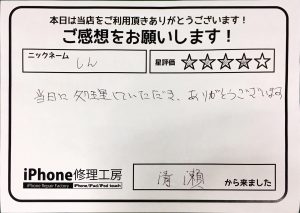 本日は当店をご利用頂きありがとうございます!
ご感想をお願いします!
ニックネーム
しん
星評価 ☆☆☆☆☆
当日に処理していただき、ありがとうございます
iPhone修理工房
iPhone Repair Factory iPhone/iPad/iPod touch
清瀬 から来ました